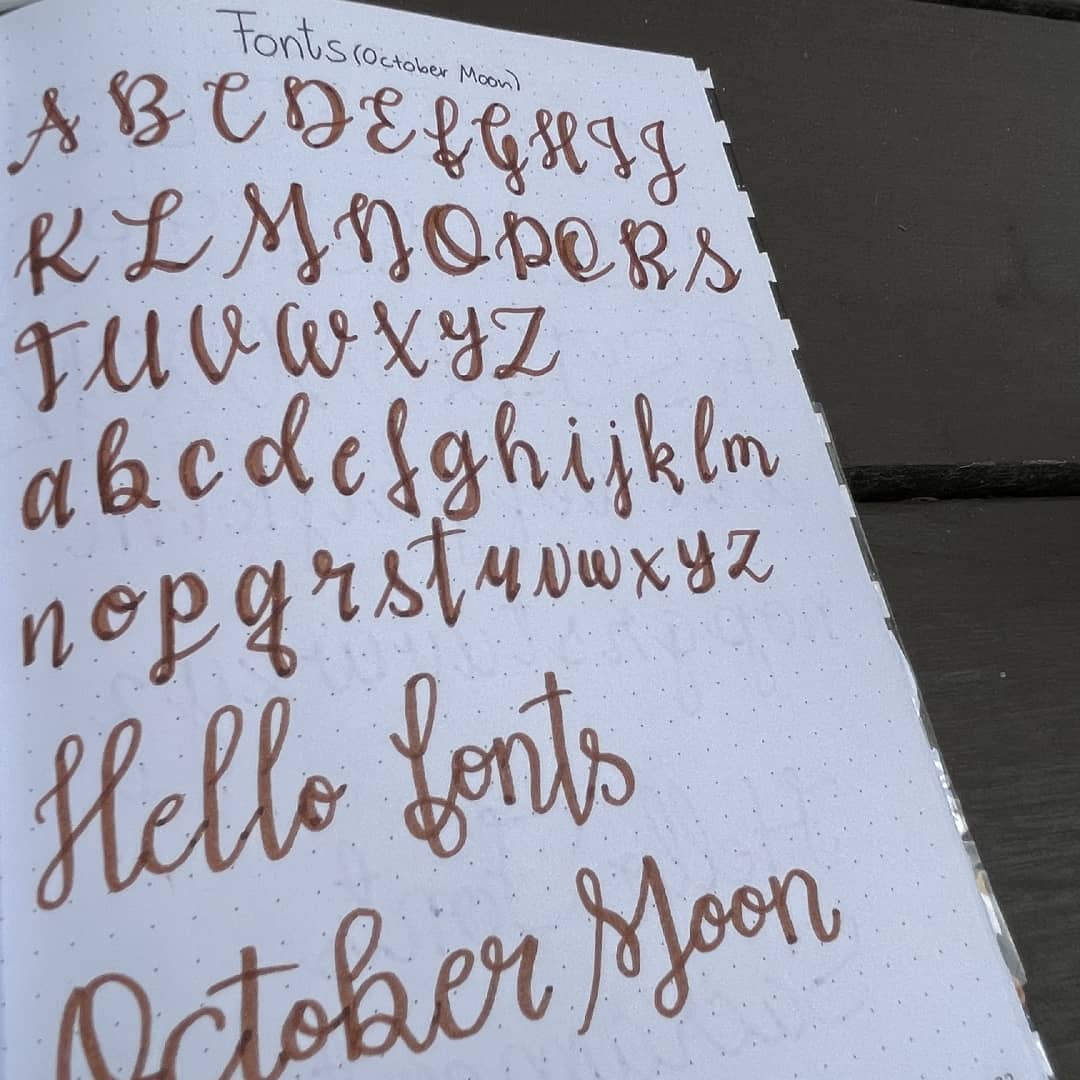 Fonts (October Moon)
A B C D E F G H I J
K L M N O P Q R S
T U V W X Y Z
a b c d e f g h i j k l m
n o p q r s t u v w x y z
Hello fonts
October Moon